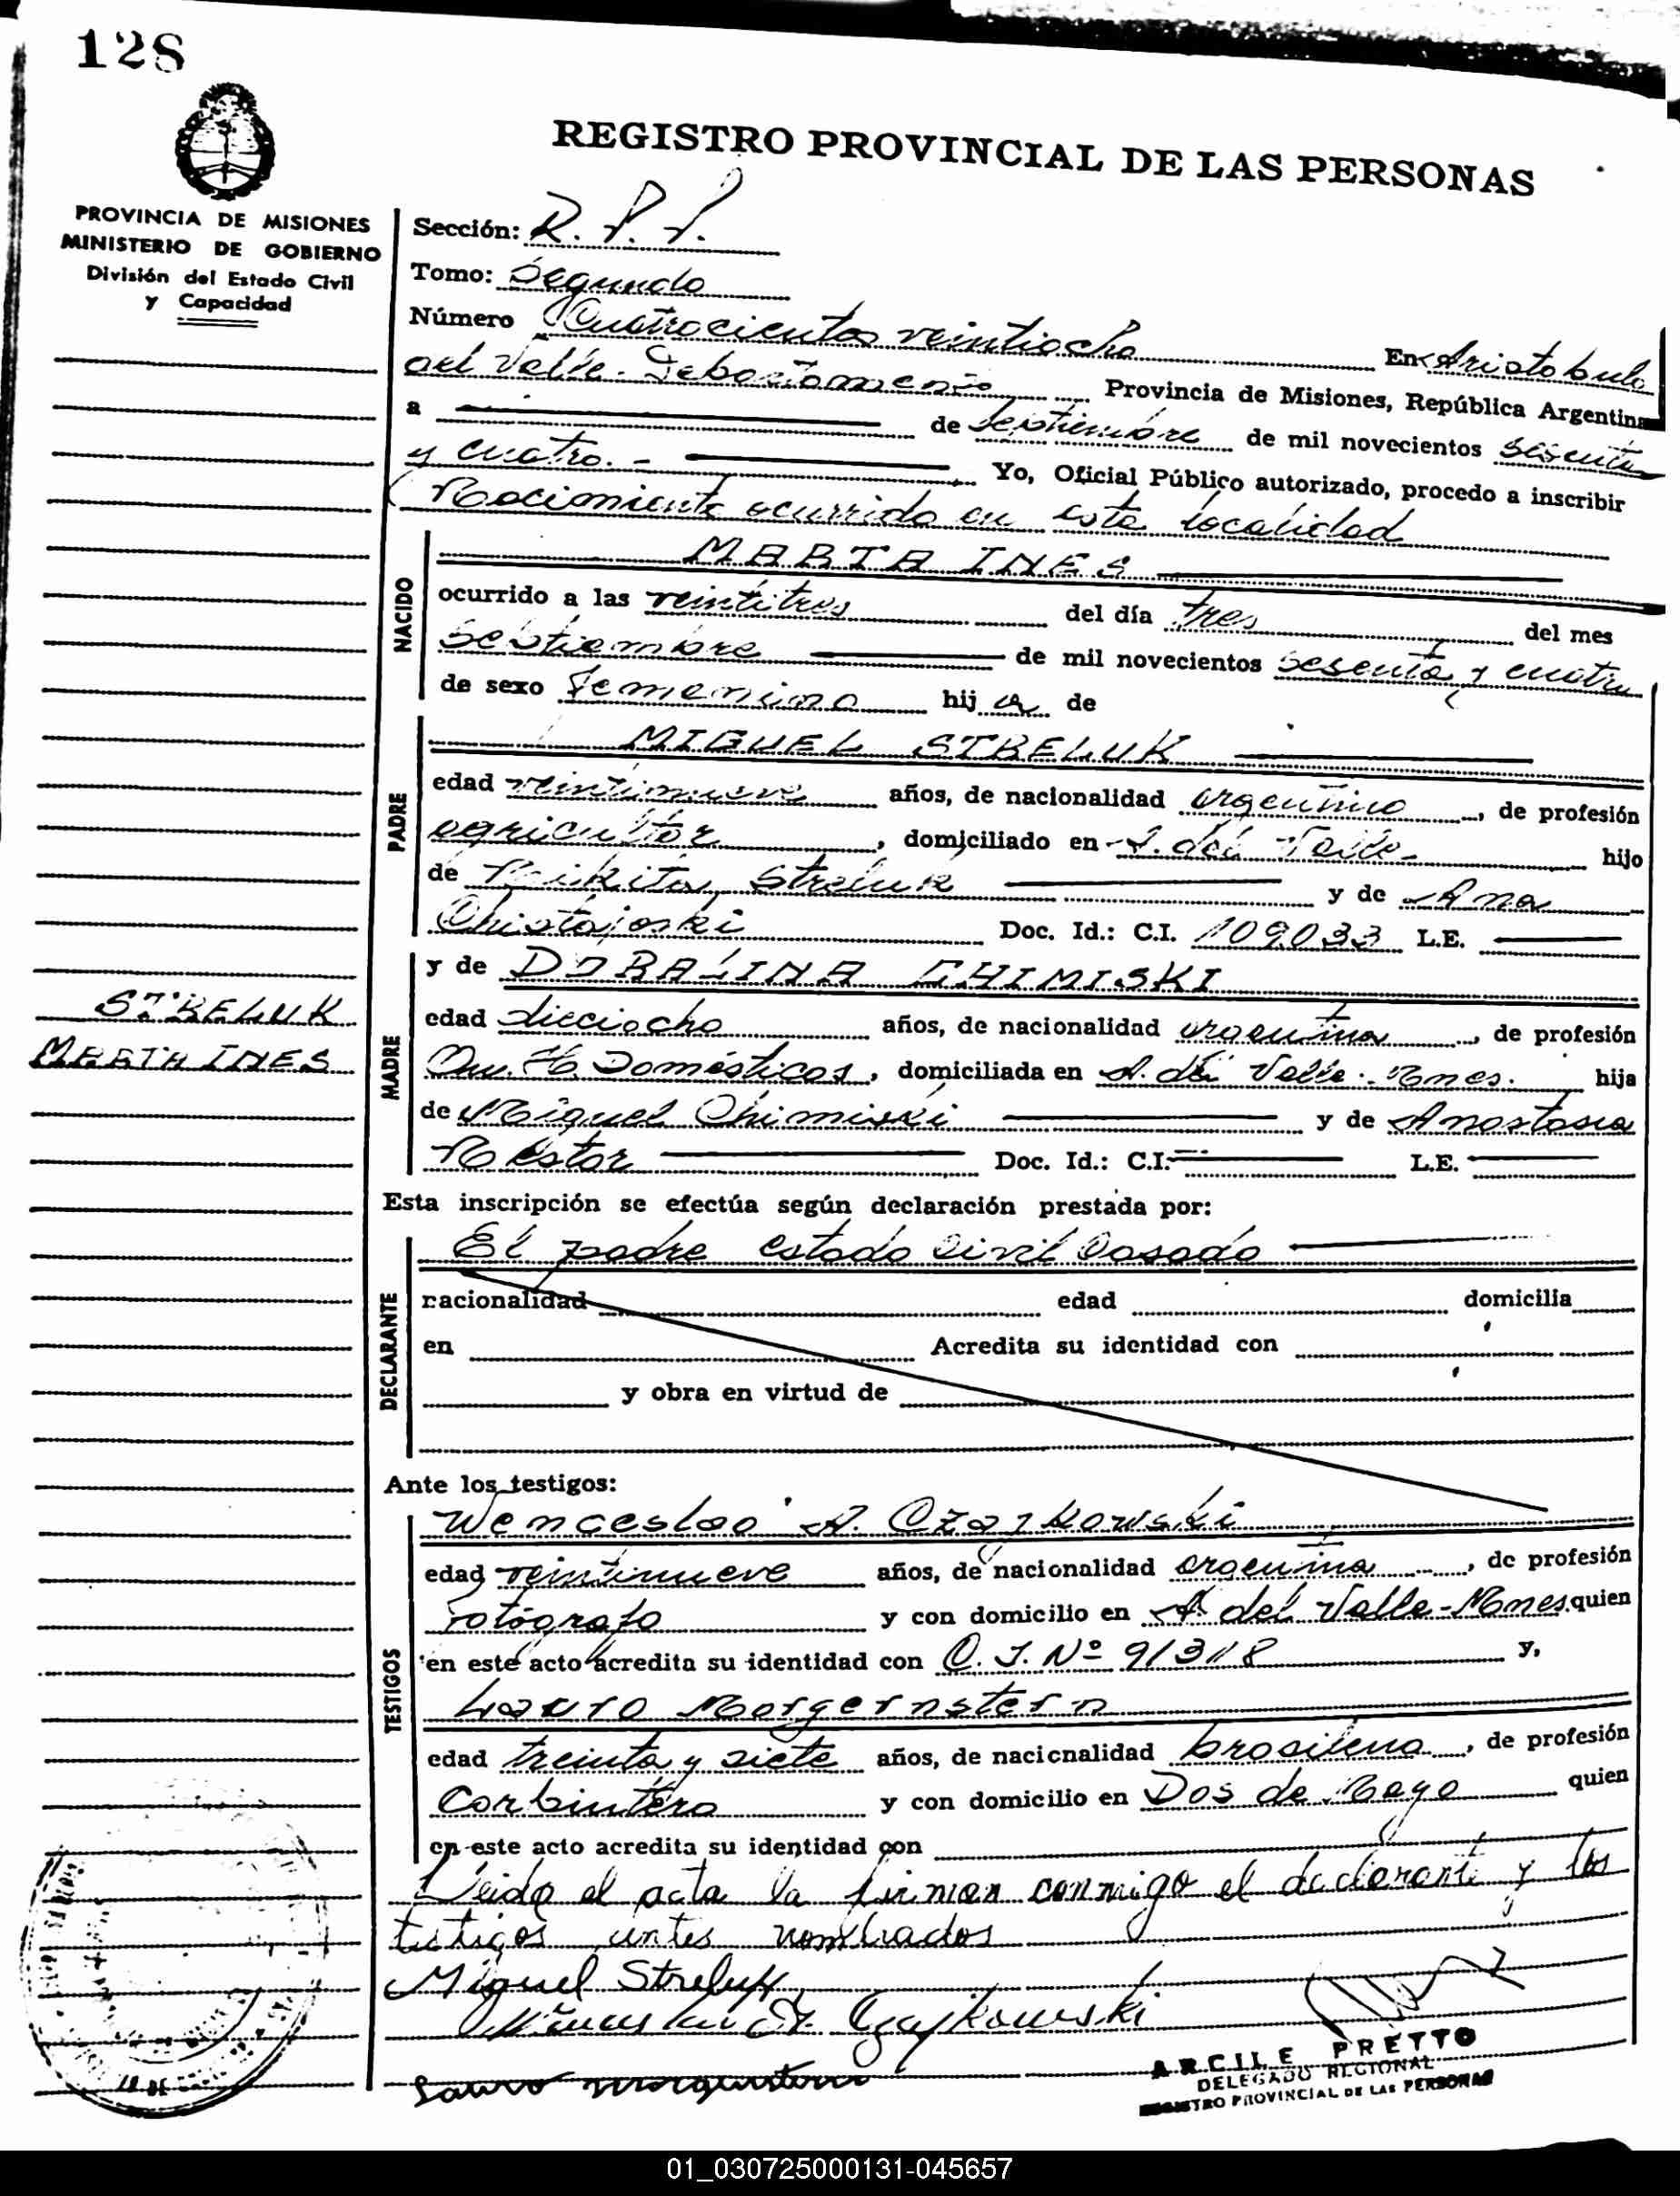 128
REGISTRO PROVINCIAL DE LAS PERSONAS
PROVINCIA DE MISIONES
MINISTERIO DE GOBIERNO
División del Estado Civil
y Capacidad
Sección: R. P. P.
Tomo: Segundo
Número Cuatrocientos veintiocho En Aristobulo
del Valle. Provincia de Misiones, República Argentina
a de Septiembre de mil novecientos sesenta
y cuatro.- Yo, Oficial Público autorizado, procedo a inscribir
Nacimiento ocurrido en esta localidad
NACIDO
MARTA INES
ocurrido a las veintitres del día tres del mes
Septiembre de mil novecientos sesenta y cuatro
de sexo femenino hij a de
PADRE
MIGUEL STRELUK
edad veintinueve años, de nacionalidad argentino, de profesión
agricultor, domiciliado en A. del Valle. hijo
de Nikita Streluk y de Ana
Doc. Id.: C.I. 109.033 L.E.
MADRE
y de DORALINA CHIMISKI
edad dieciocho años, de nacionalidad argentina, de profesión
Domésticos, domiciliada en A. del Valle. Mnes. hija
de Miguel Chimiski y de Anastasia
Doc. Id.: C.I. L.E.
STRELUK
MARTA INES
Esta inscripción se efectúa según declaración prestada por:
DECLARANTE
El padre estado civil casado
nacionalidad edad domicilia
en Acredita su identidad con
y obra en virtud de
Ante los testigos:
TESTIGOS
Wenceslao A. Czajkowski
edad veintinueve años, de nacionalidad argentina, de profesión
Fotógrafo y con domicilio en A. del Valle-Mnes. quien
en este acto acredita su identidad con C. I. Nº 91318 y,
Lauro Morgernstern
edad treinta y siete años, de nacionalidad brasilena, de profesión
Carbintero y con domicilio en Dos de Mayo quien
en este acto acredita su identidad con
Leida el acta la firman conmigo el declarante y los
testigos antes nombrados
Miguel Streluk
Czajkowski
Lauro Morgenstern
ARCILE PRETTO
DELEGADO REGIONAL
REGISTRO PROVINCIAL DE LAS PERSONAS
01_030725000131-045657